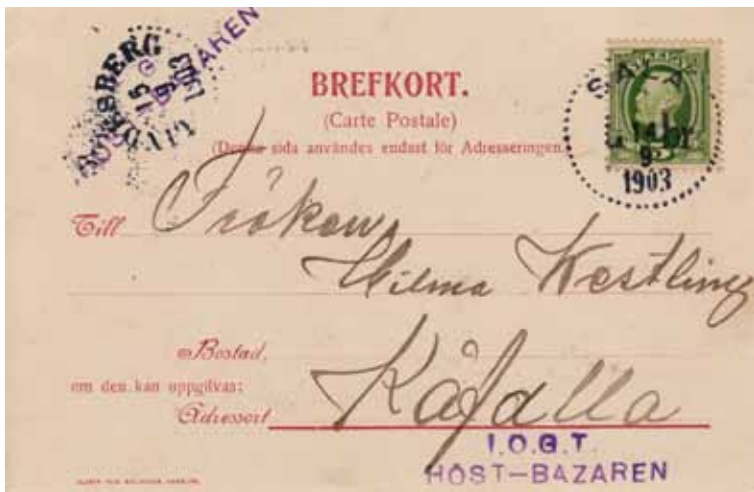 LINDESBERG
15
9
1903
BAZAREN
BREFKORT.
(Carte Postale)
(Denna sida användes endast för Adresseringen.)
SALA
14
9
1903
Till Fröken
Hilma Westling
Bostad,
om den kan uppgifvas:
Adressort Kåfalla
I.O.G.T.
HÖST-BAZAREN